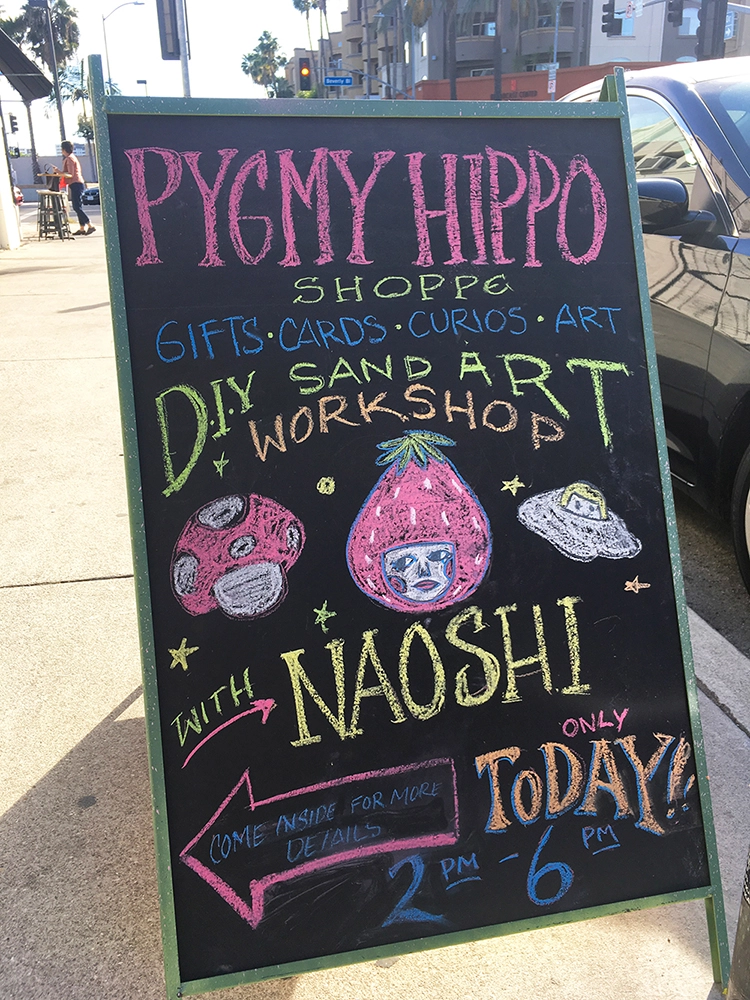 Beverly Bl
PYGMY HIPPO
SHOPPE
GIFTS · CARDS · CURIOS · ART
D.I.Y SAND ART
WORKSHOP
WITH NAOSHI
ONLY
TODAY!!
COME INSIDE FOR MORE
DETAILS
2 PM - 6 PM